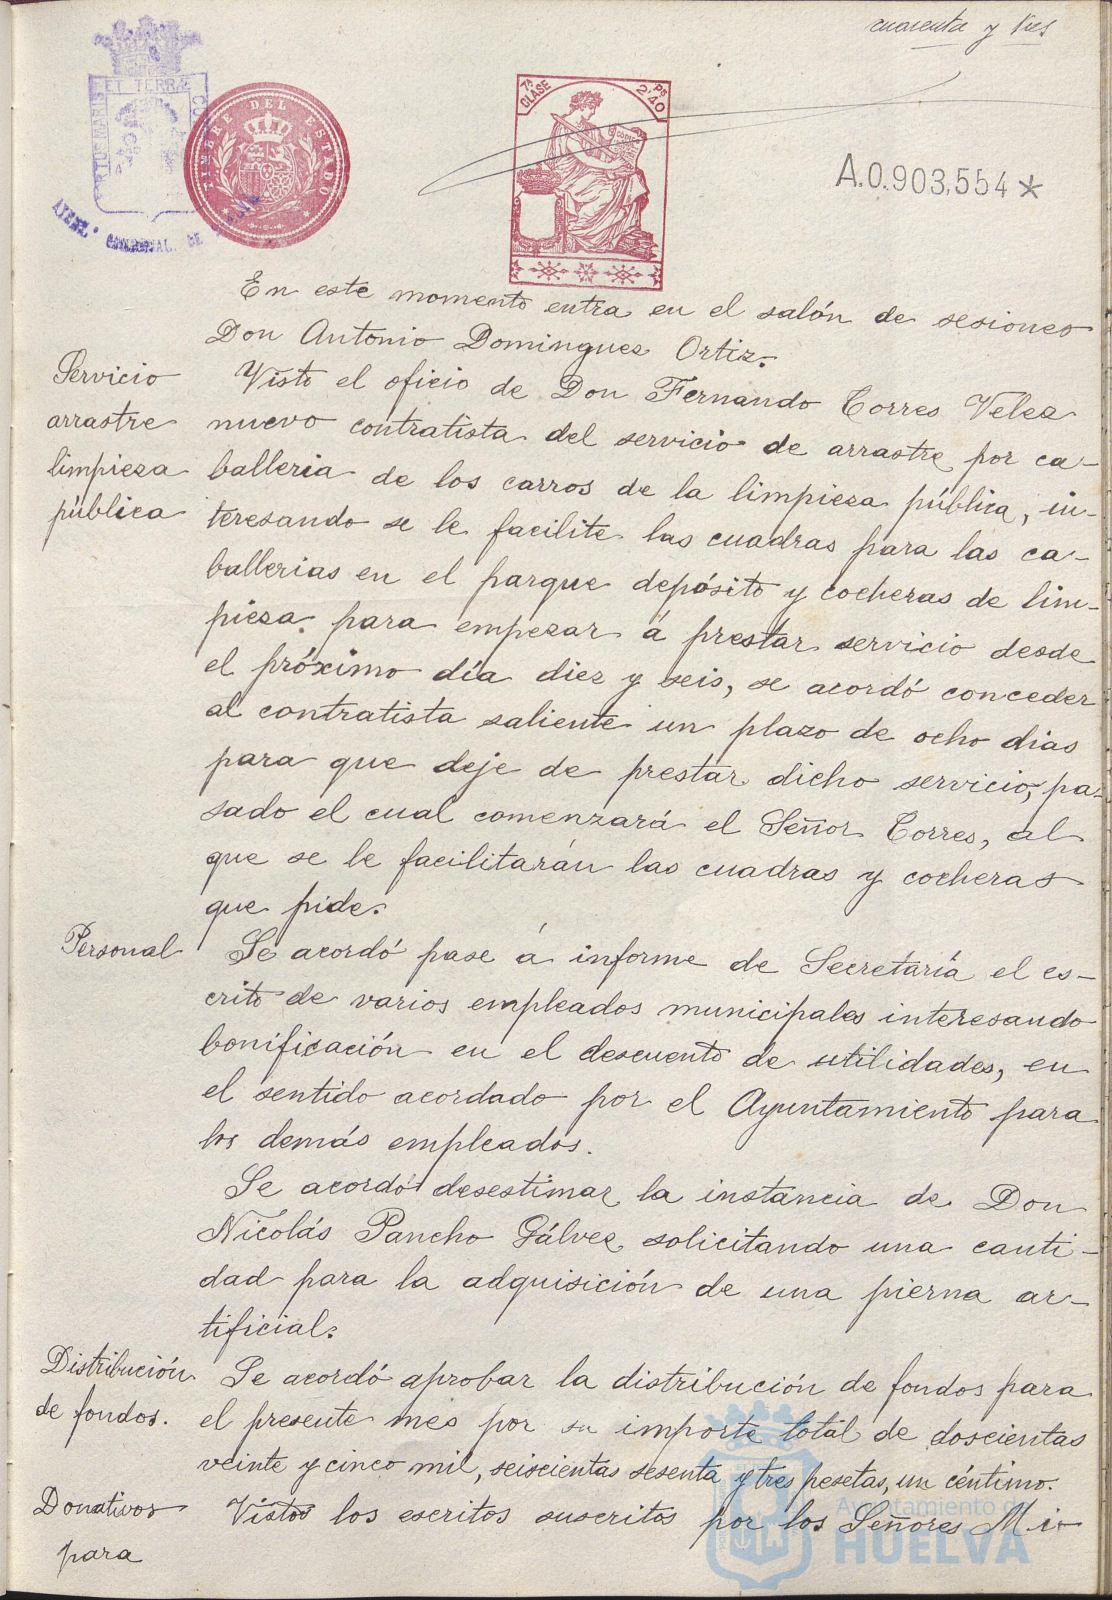 cuarenta y tres
TIMBRE DEL ESTADO
7ª CLASE
Ps 2'40
A.0.903,554*
En este momento entra en el salón de sesiones
Don Antonio Dominguez Ortiz.
Servicio arrastre limpieza pública
Visto el oficio de Don Fernando Torres Velez
nuevo contratista del servicio de arrastre por ca-
balleria de los carros de la limpieza pública, in-
teresando se le facilite las cuadras para las ca-
ballerias en el parque depósito y cocheras de lim-
pieza para empezar á prestar servicio desde
el próximo día diez y seis, se acordó conceder
al contratista saliente un plazo de ocho dias
para que deje de prestar dicho servicio, pa-
sado el cual comenzará el Señor Torres, al
que se le facilitarán las cuadras y cocheras
que pide.
Personal
Se acordó pase á informe de Secretaría el es-
crito de varios empleados municipales interesando
bonificación en el descuento de utilidades, en
el sentido acordado por el Ayuntamiento para
los demás empleados.
Se acordó desestimar la instancia de Don
Nicolás Pancho Gálvez solicitando una canti-
dad para la adquisición de una pierna ar-
tificial.
Distribución de fondos.
Se acordó aprobar la distribución de fondos para
el presente mes por su importe total de doscientas
veinte y cinco mil, seiscientas sesenta y tres pesetas, un céntimo.
Donativos para
Vistos los escritos suscritos por los Señores Mi-
Ayuntamiento de
HUELVA